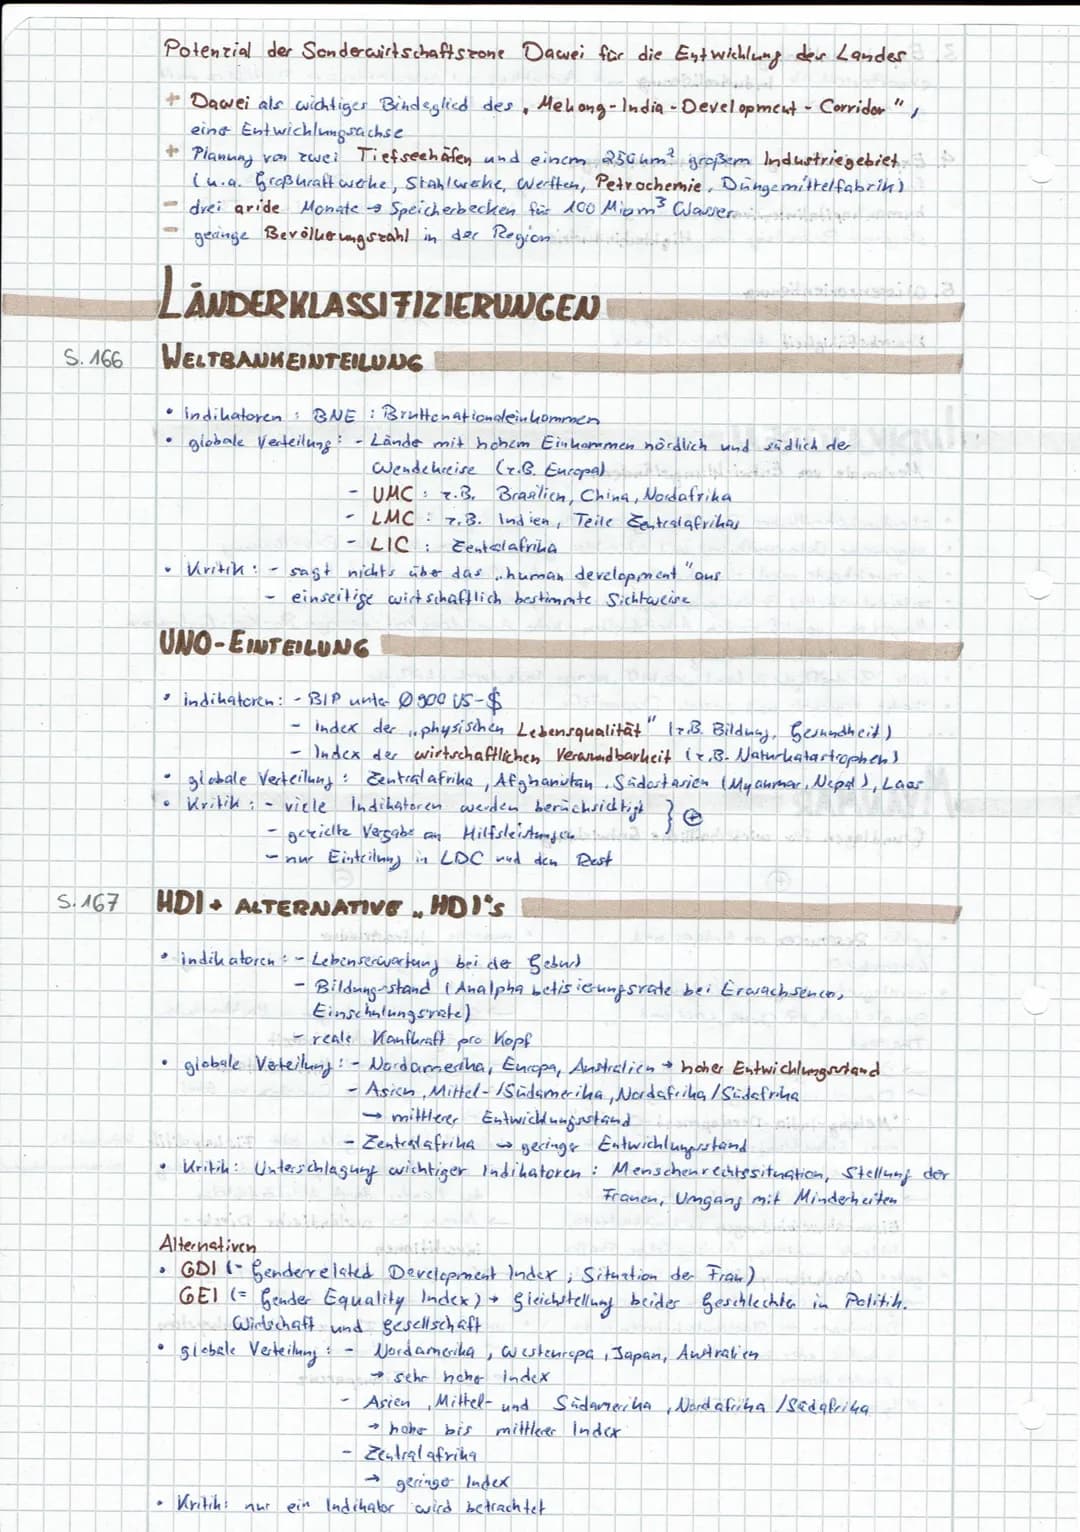 Potenzial der Sonderwirtschaftszone Dawei für die Entwicklung des Landes
+ Dawei als wichtiges Bindeglied des „Mekong-India-Development-Corridor“,
eine Entwicklungsachse
+ Planung von zwei Tiefseehäfen und einem 250km² großem Industriegebiet
(u.a. Großkraftwerke, Stahlwerke, Werften, Petrochemie, Düngemittelfabrik)
- drei aride Monate → Speicherbecken für 100 Mio m³ Wasser
- geringe Bevölkerungszahl in der Region
LÄNDERKLASSIFIZIERUNGEN
S. 166 WELTBANKEINTEILUNG
• Indikatoren : BNE : Bruttonationaleinkommen
• globale Verteilung : - Länder mit hohem Einkommen nördlich und südlich der
Wendekreise (z.B. Europa)
- UMC : z.B. Brasilien, China, Nordafrika
- LMC : z.B. Indien, Teile Zentralafrikas
- LIC : Zentralafrika
• Kritik : - sagt nichts über das „human development“ aus
- einseitige wirtschaftlich bestimmte Sichtweise
UNO-EINTEILUNG
• Indikatoren : - BIP unter Ø 900 US-$
- Index der „physischen Lebensqualität“ (z.B. Bildung, Gesundheit)
- Index der wirtschaftlichen Verwundbarkeit (z.B. Naturkatastrophen)
• globale Verteilung : Zentralafrika, Afghanistan, Südostasien (Myanmar, Nepal), Laos
• Kritik : - viele Indikatoren werden berücksichtigt } ⊕
- gezielte Vergabe an Hilfsleistungen
- nur Einteilung in LDC und den Rest
S. 167 HDI + ALTERNATIVE „HDI's
• Indikatoren : - Lebenserwartung bei der Geburt
- Bildungsstand (Analphabetisierungsrate bei Erwachsenen,
Einschulungsrate)
- reale Kaufkraft pro Kopf
• globale Verteilung : - Nordamerika, Europa, Australien → hoher Entwicklungsstand
- Asien, Mittel-/Südamerika, Nordafrika/Südafrika
→ mittlerer Entwicklungsstand
- Zentralafrika → geringer Entwicklungsstand
• Kritik : Unterschlagung wichtiger Indikatoren : Menschenrechtssituation, Stellung der
Frauen, Umgang mit Minderheiten
Alternativen
• GDI (= Genderrelated Development Index ; Situation der Frau)
GEI (= Gender Equality Index) → Gleichstellung beider Geschlechter in Politik,
Wirtschaft und Gesellschaft
• globale Verteilung : - Nordamerika, Westeuropa, Japan, Australien
→ sehr hoher Index
- Asien, Mittel- und Südamerika, Nordafrika/Südafrika
→ hoher bis mittlerer Index
- Zentralafrika
→ geringer Index
• Kritik : nur ein Indikator wird betrachtet